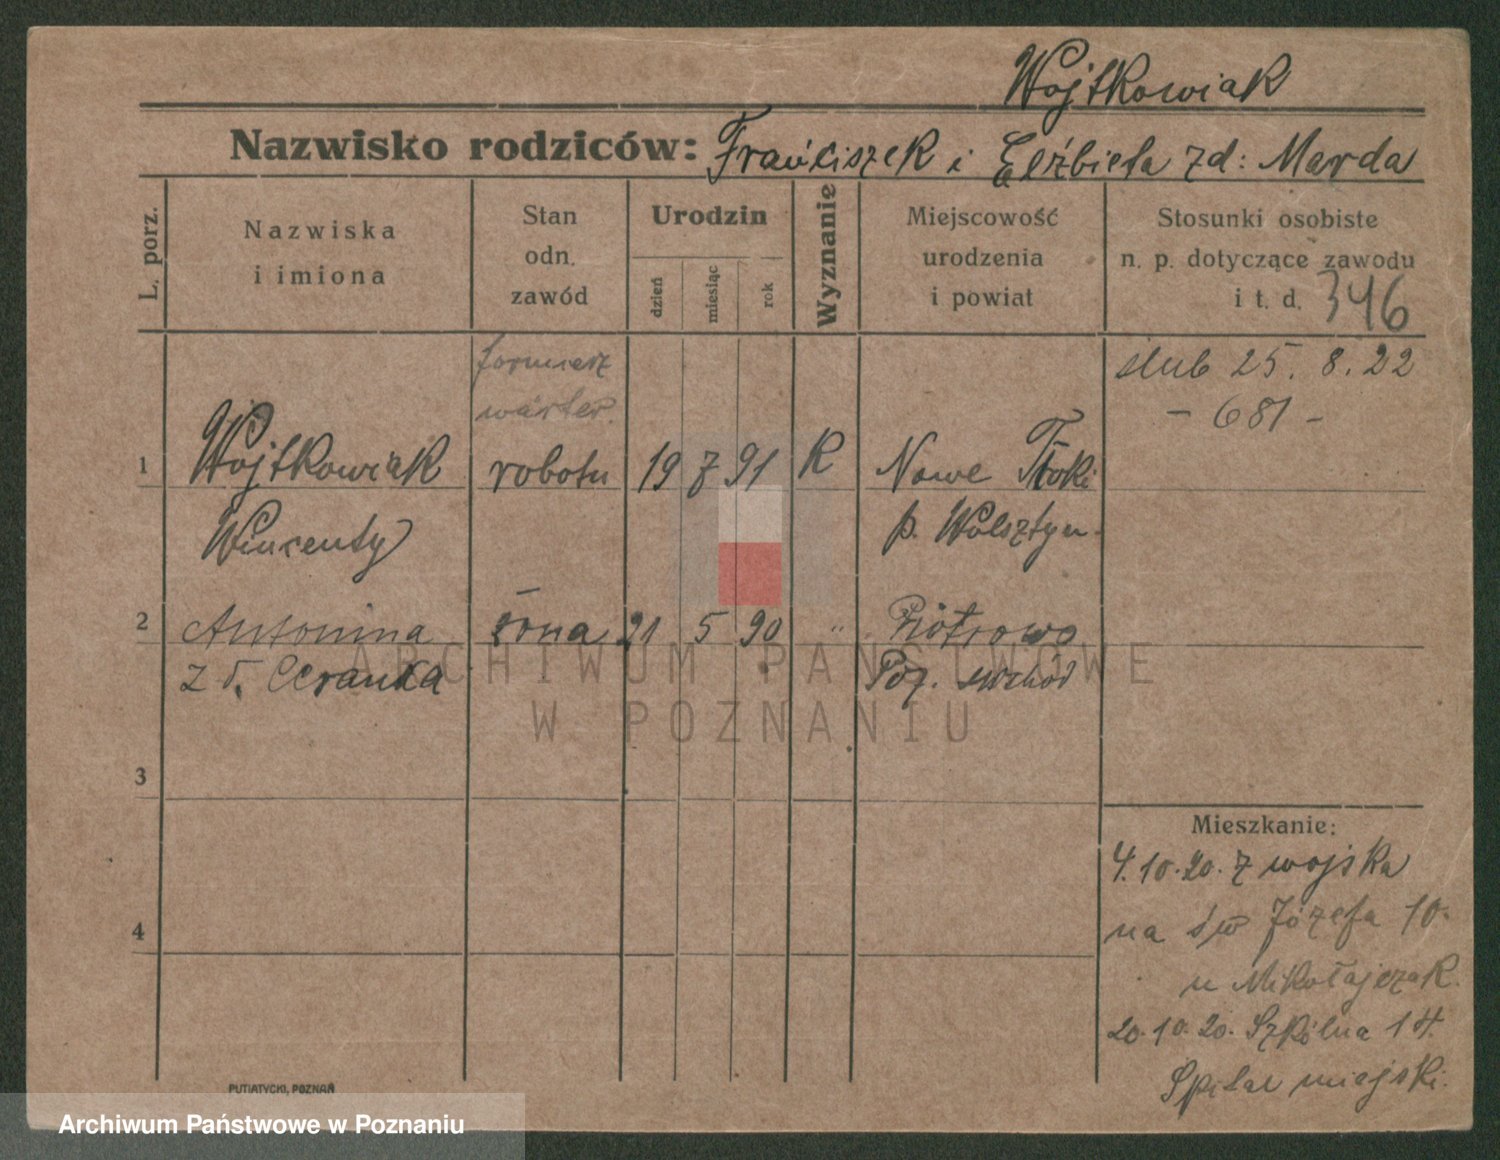 Wojtkowiak
Nazwisko rodziców: Franciszek i Elżbieta zd: Marda
L. porz.
Nazwiska
i imiona
Stan
odn.
zawód
Urodzin
dzień
miesiąc
rok
Wyznanie
Miejscowość
urodzenia
i powiat
Stosunki osobiste
n. p. dotyczące zawodu
i t. d. 346
formierz
wärter
ślub 25. 8. 22
- 681 -
1 Wojtkowiak robotn 19 7 91 K Nowe Tłoki
Wincenty p. Wolsztyn
2 Antonina żona 21 5 90 " Piotrowo
z d. Poz. wschód
ARCHIWUM PAŃSTWOWE
W POZNANIU
3
4
Mieszkanie:
4.10.20. z wojska
na św Józefa 10.
u Mikołajczak.
20.10.20. Szkólna 14.
Szpital miejski.
PUTIATYCKI, POZNAŃ
Archiwum Państwowe w Poznaniu